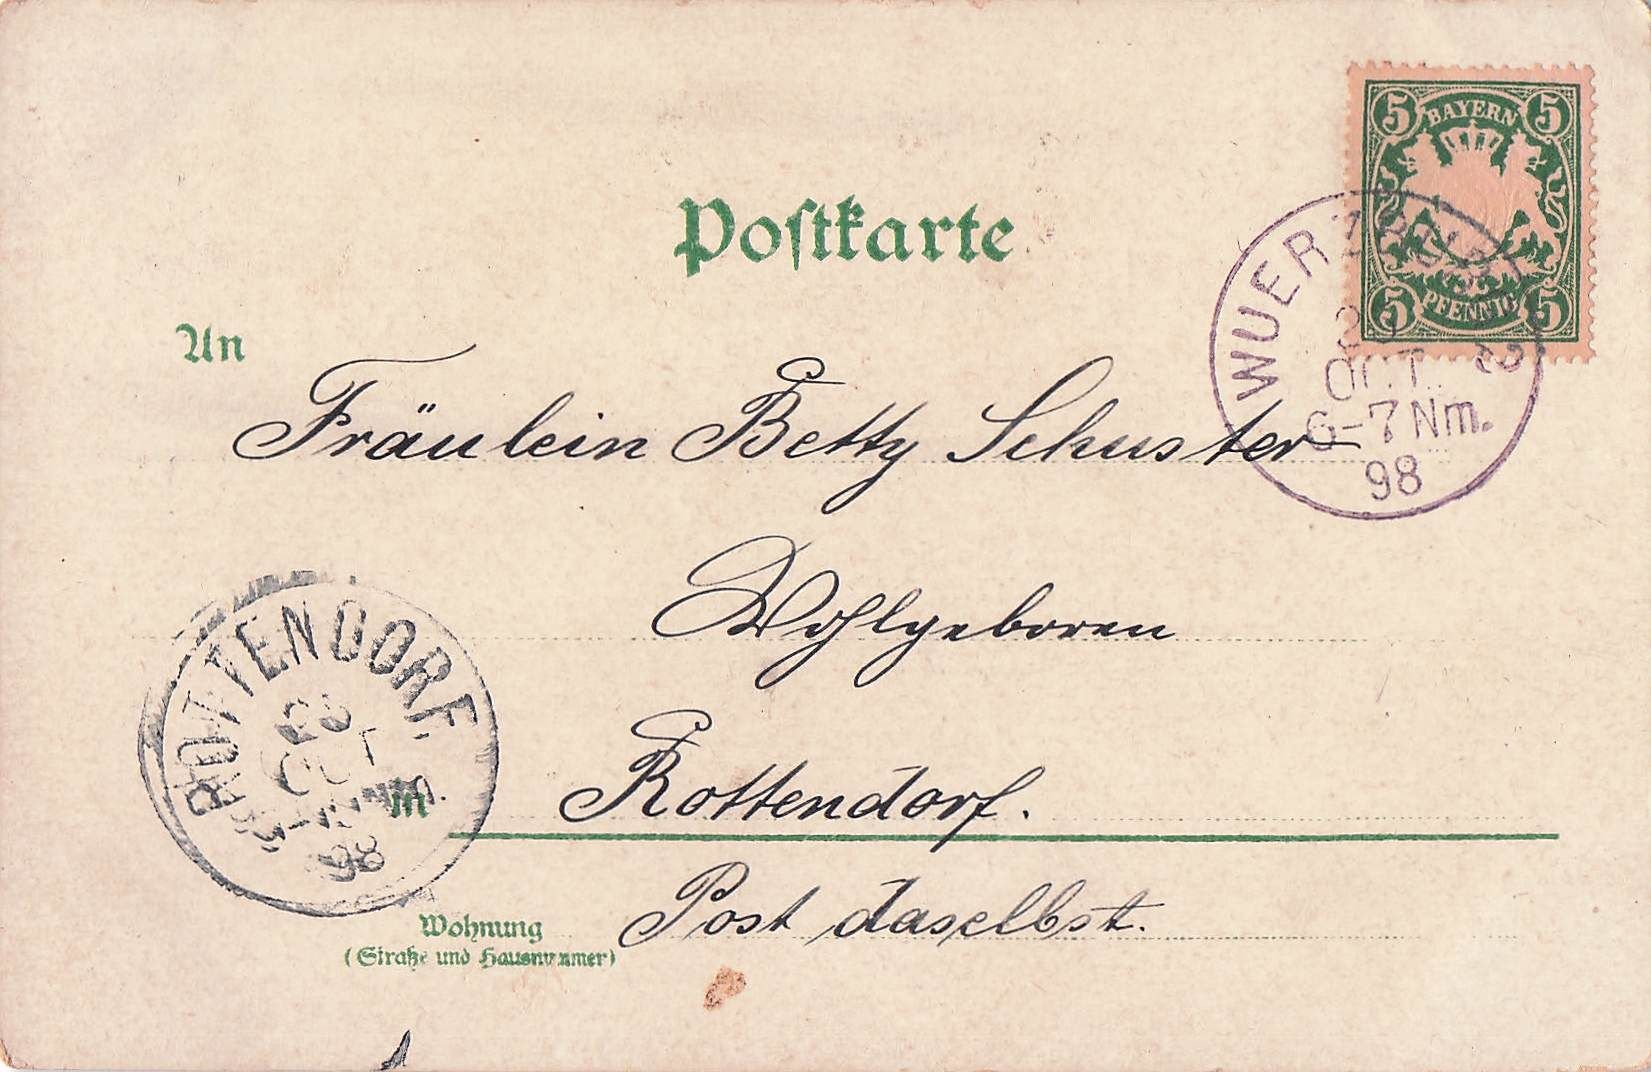 5 BAYERN 5
5 PFENNIG 5
Postkarte
WUERZBURG 2
OCT.
6-7 Nm.
98
An
Fräulein Betty Schuster
Wohlgeboren
ROTTENDORF.
OCT
98
in
Rottendorf.
Wohnung
(Straße und Hausnummer)
Post daselbst.